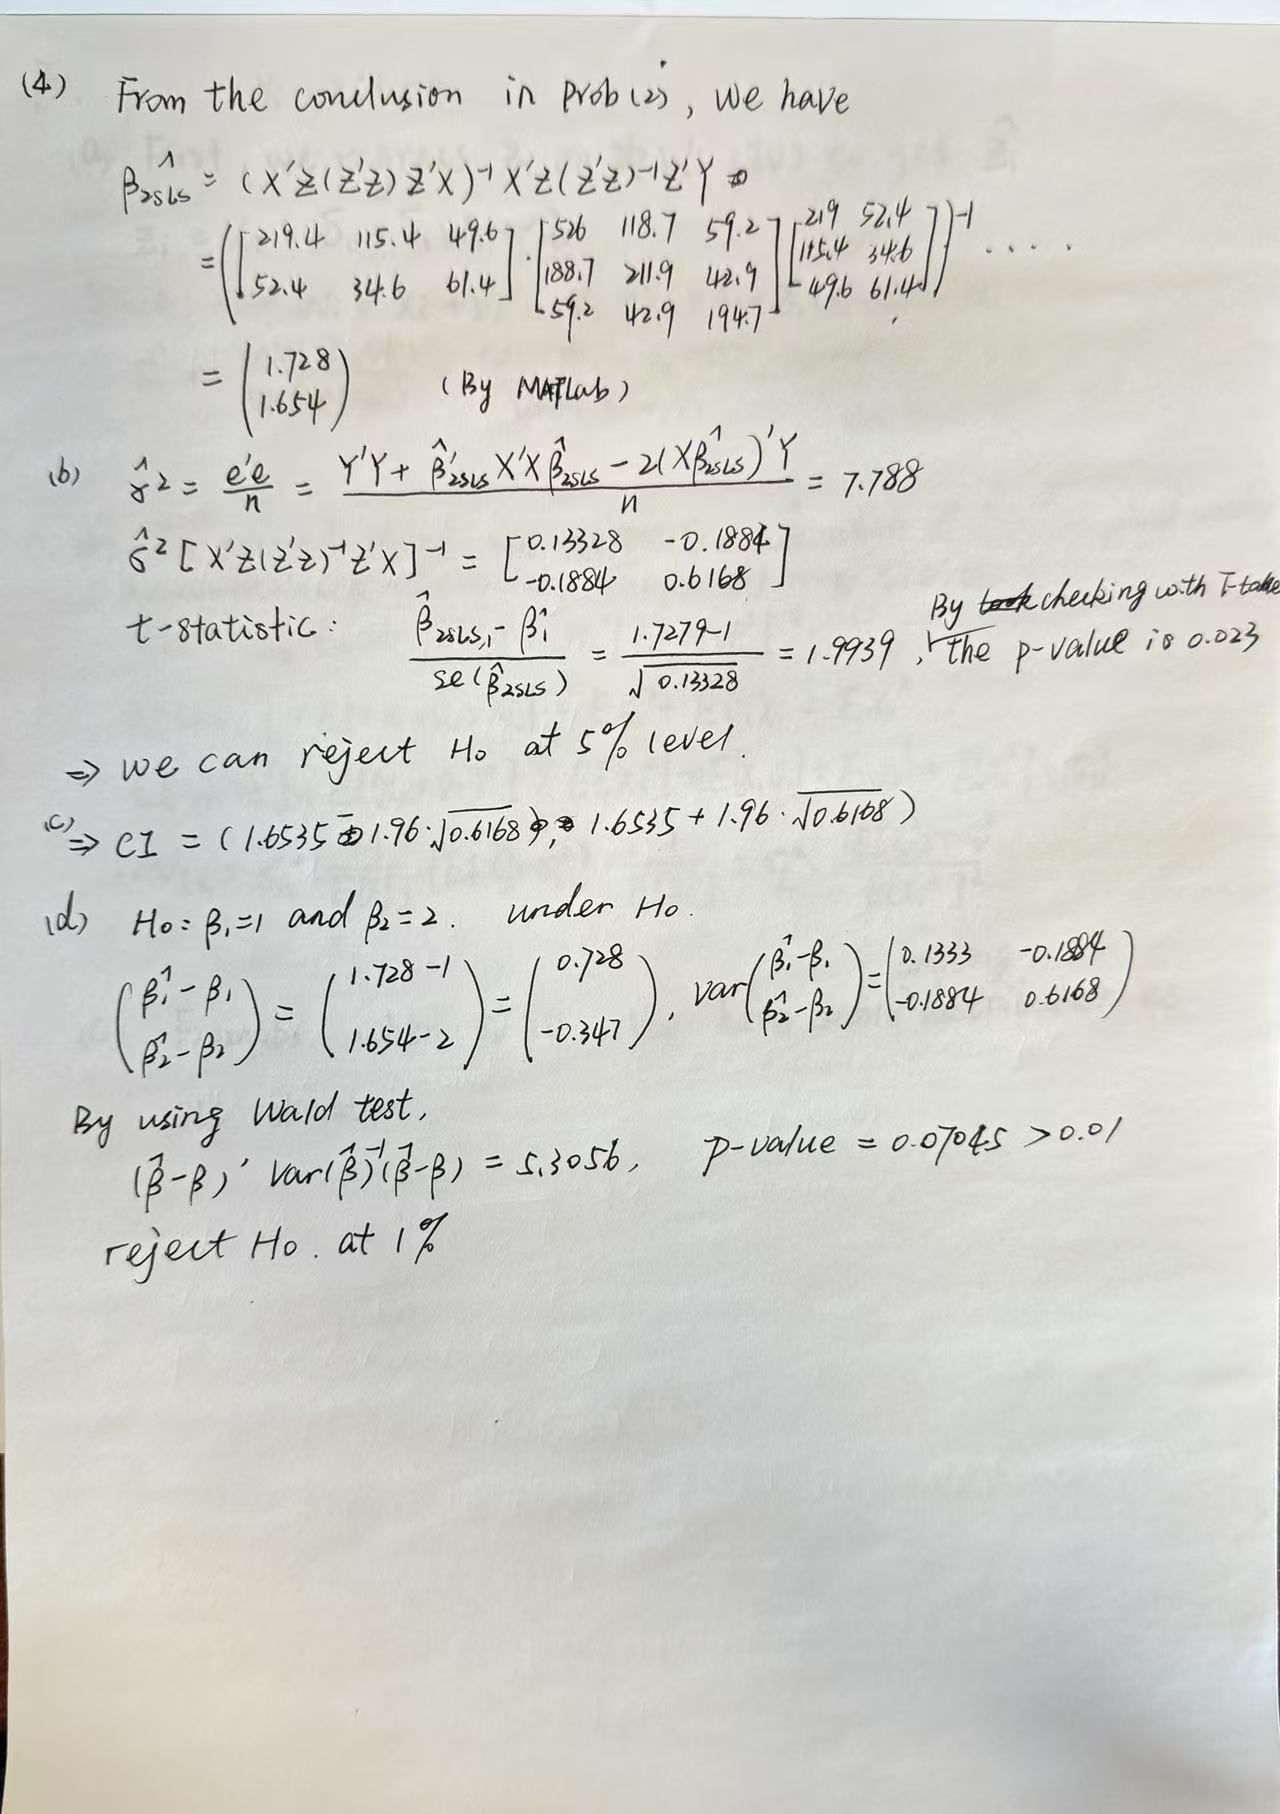 (4) From the conclusion in prob(2), we have
β̂2SLS = (X'Z(Z'Z)Z'X)⁻¹X'Z(Z'Z)⁻¹Z'Y
= ([219.4 115.4 49.6; 52.4 34.6 61.4] · [526 118.7 59.2; 188.7 211.9 42.9; 59.2 42.9 194.7] [219 52.4; 115.4 34.6; 49.6 61.4])⁻¹ ....
= (1.728; 1.654) (By MATLab)
(b) σ̂² = e'e/n = (Y'Y + β̂'2SLS X'X β̂2SLS − 2(Xβ̂2SLS)'Y)/n = 7.788
σ̂²[X'Z(Z'Z)⁻¹Z'X]⁻¹ = [0.13328 -0.1884; -0.1884 0.6168]
t-statistic: (β̂2SLS,1 − β̂1)/se(β̂2SLS) = (1.7279-1)/√0.13328 = 1.9939, By checking with T-table, the p-value is 0.023
⇒ we can reject H₀ at 5% level.
(c) ⇒ CI = (1.6535 − 1.96·√0.6168, 1.6535 + 1.96·√0.6168)
(d) H₀: β₁=1 and β₂=2. under H₀.
(β̂₁-β₁; β̂₂-β₂) = (1.728-1; 1.654-2) = (0.728; -0.347), var(β̂₁-β₁; β̂₂-β₂) = (0.1333 -0.1884; -0.1884 0.6168)
By using Wald test,
(β̂-β)' var(β̂)⁻¹(β̂-β) = 5.3056, p-value = 0.07045 > 0.01
reject H₀. at 1%